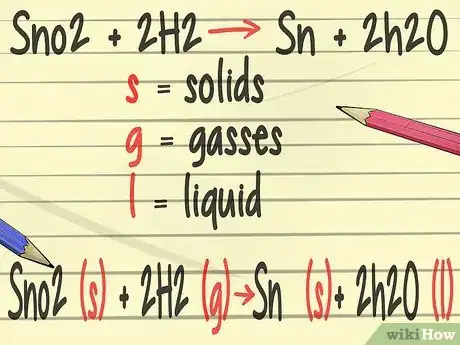 Sno2 + 2H2 → Sn + 2h2O
s = solids
g = gasses
l = liquid
Sno2 (s) + 2H2 (g) → Sn (s) + 2h2O (l)
wikiHow